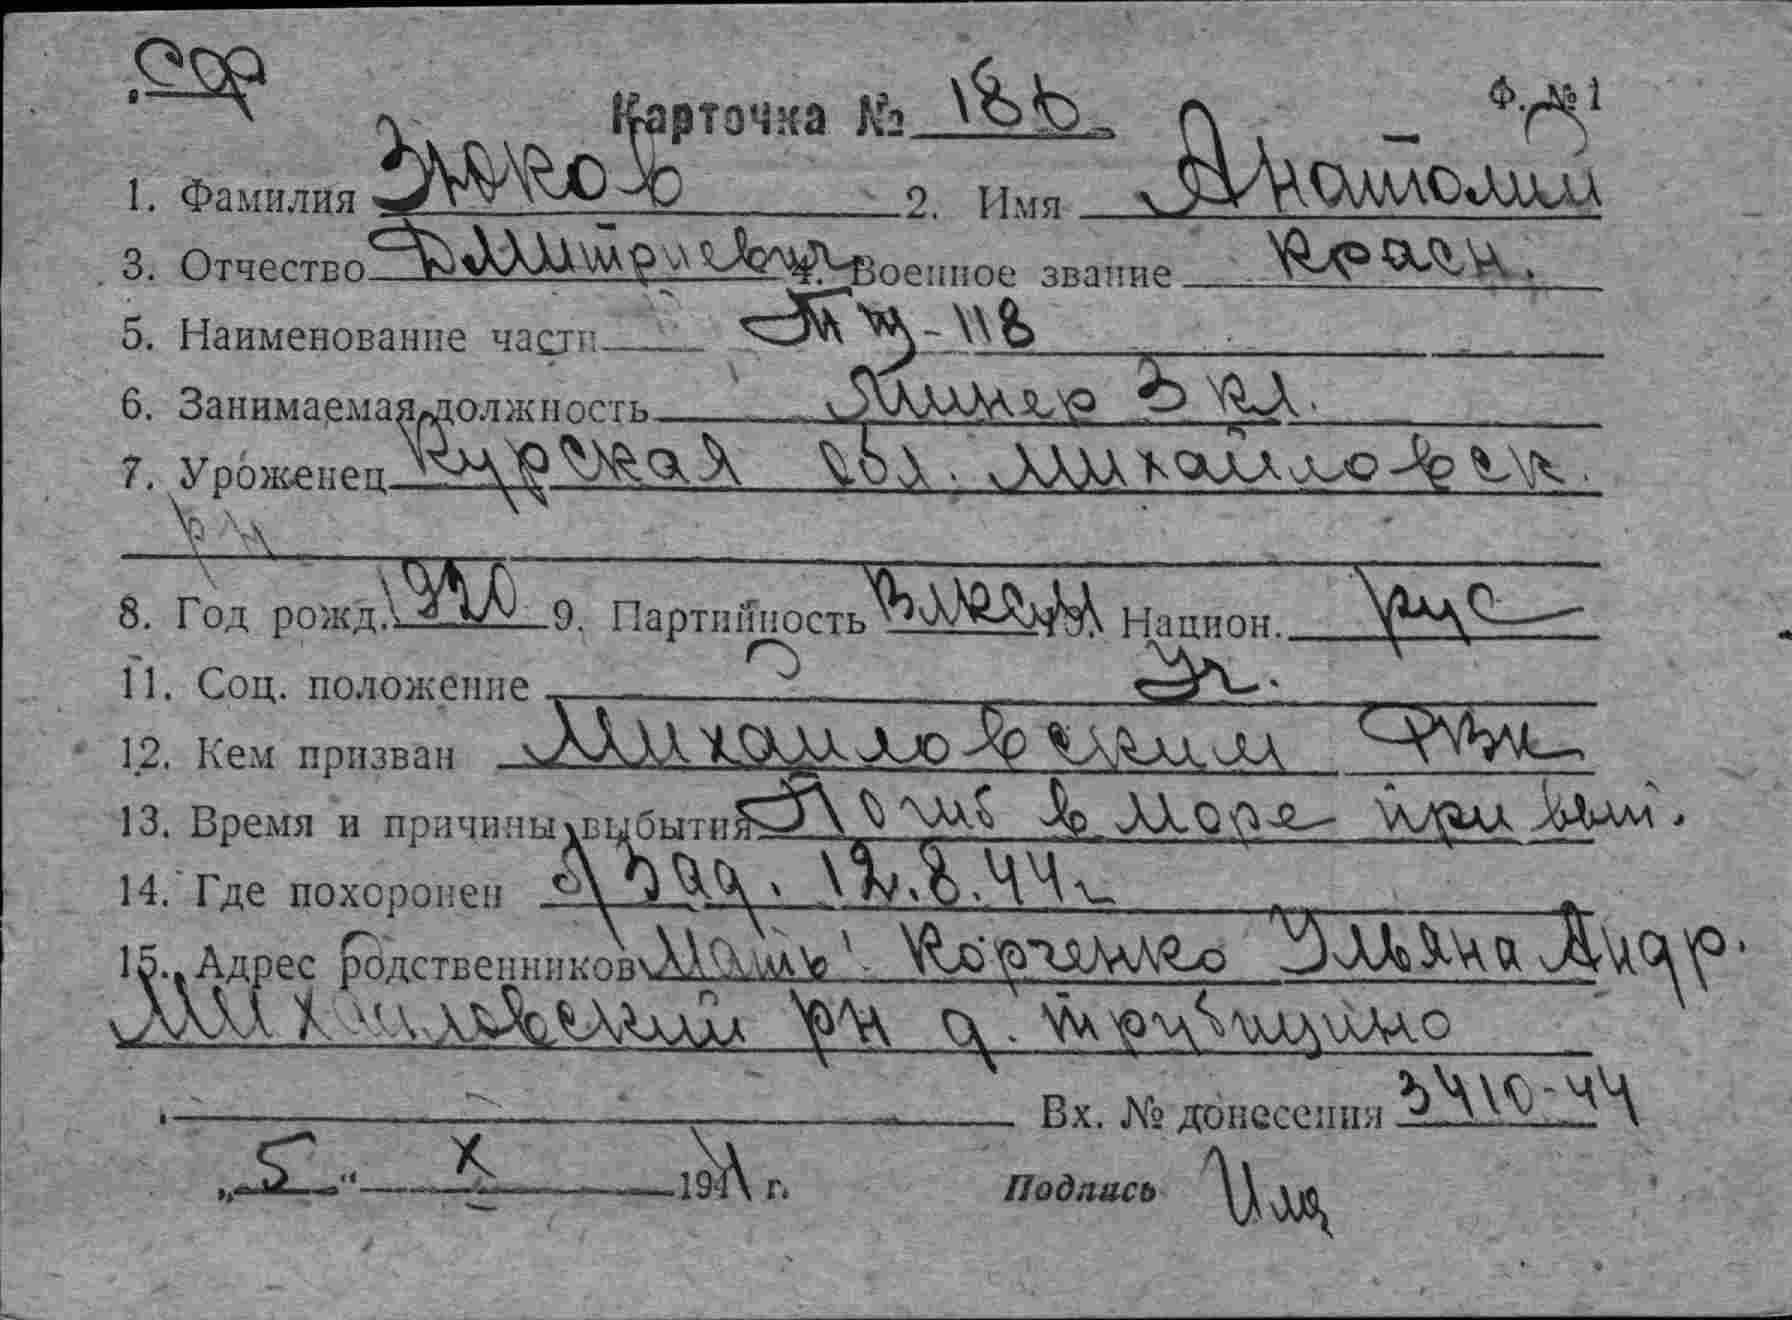 Ф. № 1
Карточка № 186
1. Фамилия Зюков 2. Имя Анатолий
3. Отчество Дмитриевич 4. Военное звание красн.
5. Наименование части Тщ-118
6. Занимаемая должность Минер 3 кл.
7. Уроженец Курская обл. Михайловск.
рн
8. Год рожд. 1920 9. Партийность ВЛКСМ 10. Национ. рус
11. Соц. положение Уч.
12. Кем призван Михайловским РВК
13. Время и причины выбытия Погиб в море при вып.
14. Где похоронен б/зад. 12.8.44г
15. Адрес родственников Мать: Корченко Ульяна Андр.
Михайловский рн д. трубицино
Вх. № донесения 3410-44
„5“ X 1944 г. Подпись